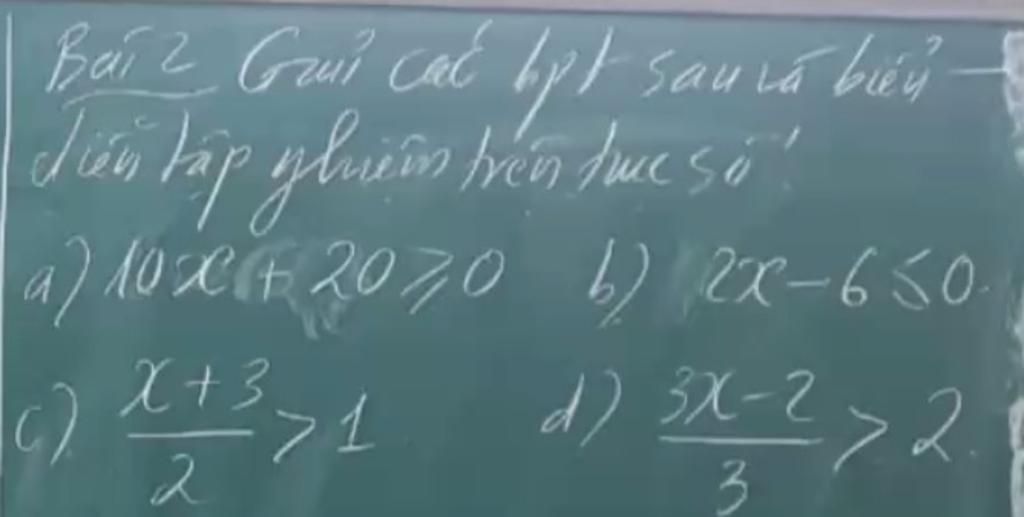 Bài 2 Giải các bpt sau và biểu
diễn tập nghiệm trên trục số
a) 10x + 20 ⩾ 0 b) 2x - 6 ≤ 0.
c) \frac{x+3}{2} > 1 d) \frac{3x-2}{3} > 2.